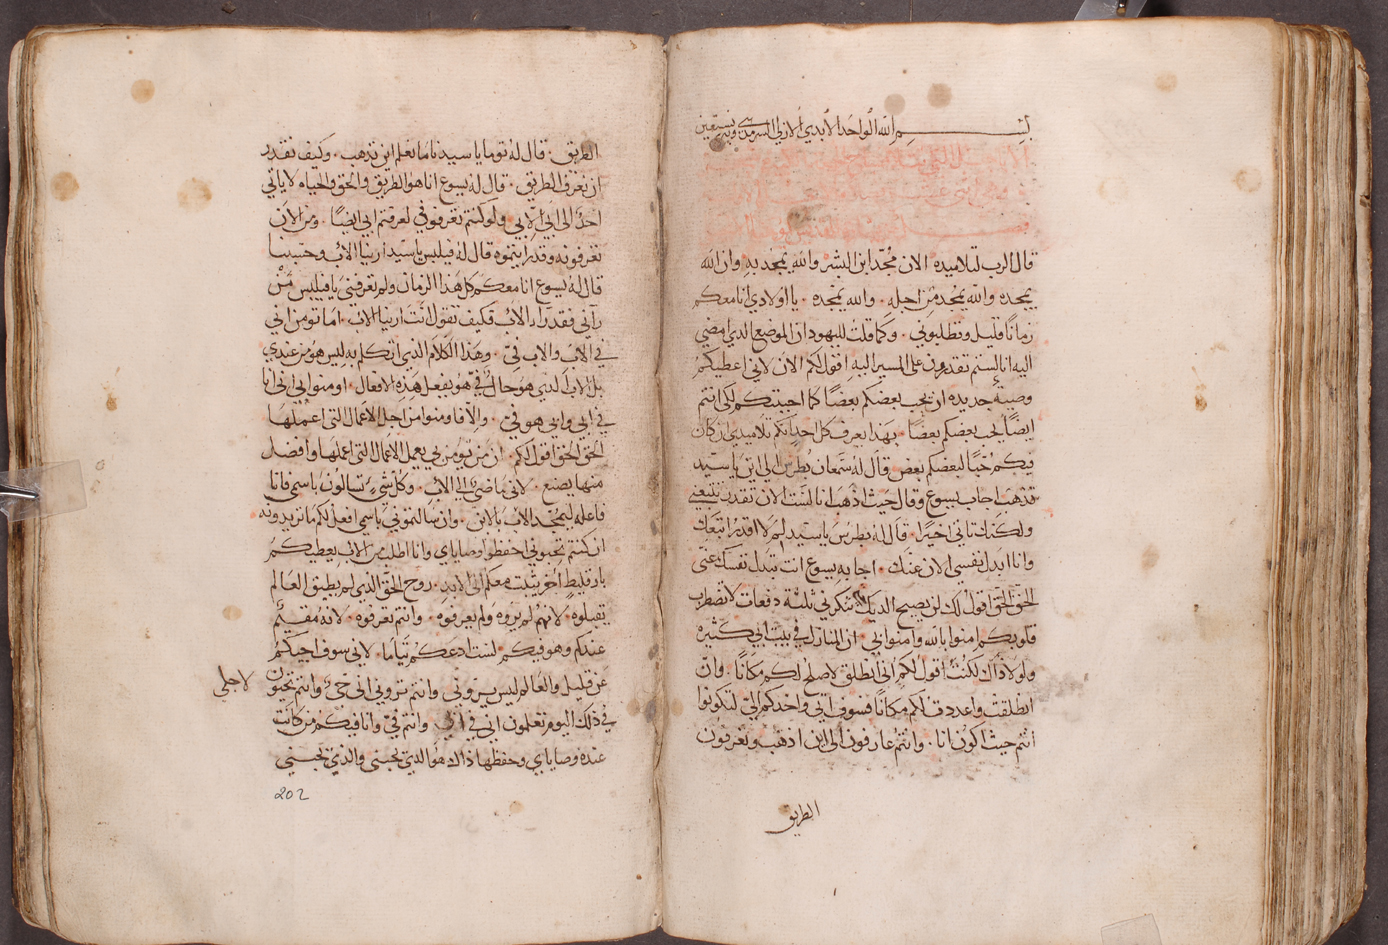 بسم الله الواحد الابدي الازلي السرمدي وبه نستعين
قال الرب لتلاميذه الان مُجّد ابن البشر والله يمجد به وان الله
يمجده والله يمجد من اجله ۰ والله يمجده ۰ يا اولادي انا معكم
زماناً قليل وتطلبوني ۰ وكما قلت لليهود ان الموضع الذي امضي
اليه انا لستم تقدرون على المسير اليه اقول لكم الان لاني اعطيكم
وصية جديده ان يحب بعضكم بعضًا كما احببتكم لكي انتم
ايضًا يحب بعضكم بعضًا ۰ بهذا يعرف كل احد انكم تلاميذي ان كان
فيكم حُبًا لبعضكم بعض قال له سمعان بطرس الى اين يا سيد
تذهب اجاب يسوع وقال حيث اذهب انا لست الان تقدر تتبعني
ولكنك تاتي اخيرًا ۰ قال له بطرس يا سيد لم لا اقدر اتبعك
وانا ابدل نفسي الان عنك ۰ اجابه يسوع انت تبدل نفسك عني
الحق الحق اقول لك لن يصيح الديك حتى تنكرني ثلثة دفعات لا تضطرب
قلوبكم امنوا بالله وامنوا بي ۰ ان المنازل في بيت ابي كثيره
ولولا ذاك لكنت اقول لكم اني انطلق لاصلح لكم مكانًا ۰ وان
انطلقت واعددت لكم مكانًا فسوف اتي واخذكم اليّ لتكونوا
انتم حيث اكون انا ۰ وانتم عارفون الى اين اذهب وتعرفون
الطريق
الطريق ۰ قال له توما يا سيدنا ما نعلم اين تذهب ۰ وكيف نقدر
ان نعرف الطريق ۰ قال له يسوع انا هو الطريق والحق والحياه لا ياتي
احدٌ الى ابي الا بي ولو كنتم تعرفوني لعرفتم ابي ايضًا ۰ ومن الان
تعرفونه وقد رايتموه قال له فيلبس يا سيد ارينا الاب وحسبنا
قال له يسوع انا معكم كل هذا الزمان ولم تعرفني يا فيلبس مَنْ
رآني فقد رآء الاب فكيف تقول انت ارينا الاب ۰ اما تومن اني
في الاب والاب فيّ ۰ وهذا الكلام الذي اتكلم به ليس هو من عندي
بل الاب الذي هو حالٌ فيّ هو يفعل هذه الافعال ۰ اومنوا بي اني انا
في ابي وابي هو في ۰ والا فاومنوا من اجل الاعمال التي اعملها
الحق الحق اقول لكم ۰ ان من يومن بي يعمل الاعمال التي اعملها وافضل
منها يصنع ۰ لاني ماضي الى الاب ۰ وكل شيء تسالون باسمي فانا
فاعله ليمجد الاب بالابن ۰ وان سالتموني باسمي افعل لكم ما تريدونه
ان كنتم تحبوني احفظوا وصاياي وانا اطلب من الاب يعطيكم
بارقليطٍ اخر يثبت معكم الى الابد ۰ روح الحق الذي لم يطيق العالم
يقبلوه ۰ لانهم لم يروه ولم يعرفوه ۰ وانتم تعرفوه ۰ لانه مُقيمٌ
عندكم وهو فيكم ۰ لست ادعكم يتاما ۰ لاني سوف اجيكم
عن قليل والعالم ليس يروني وانتم تروني اني حي وانتم تحيون لاجلي
في ذلك اليوم تعلمون اني في ابي ۰ وانتم فيّ وانا فيكم من كانت
عنده وصاياي وحفظها ذاك هو الذي يحبني والذي يحبني
202